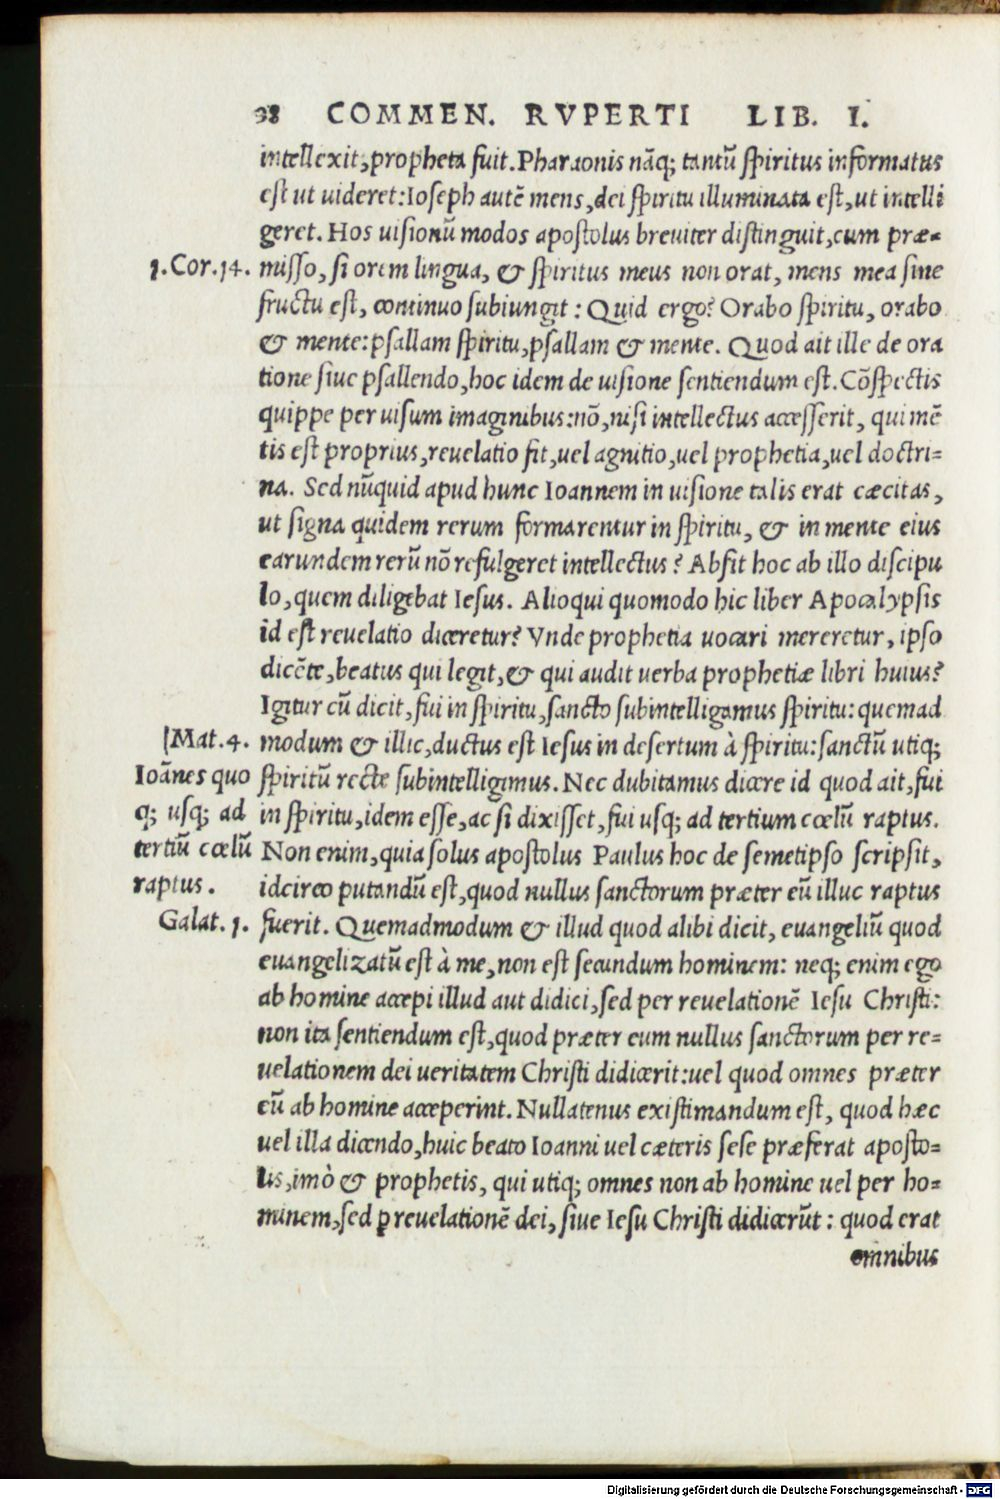 98 COMMEN. RVPERTI LIB. I.
intellexit, propheta fuit. Pharaonis nãq; tantũ spiritus informatus
est ut uideret: Ioseph autẽ mens, dei spiritu illuminata est, ut intelli
geret. Hos uisionũ modos apostolus breuiter distinguit, cum præ=
1. Cor. 14. misso, si orem lingua, & spiritus meus non orat, mens mea sine
fructu est, continuo subiungit: Quid ergo? Orabo spiritu, orabo
& mente: psallam spiritu, psallam & mente. Quod ait ille de ora
tione siue psallendo, hoc idem de uisione sentiendum est. Cõspectis
quippe per uisum imaginibus: nõ, nisi intellectus accesserit, qui mẽ
tis est proprius, reuelatio fit, uel agnitio, uel prophetia, uel doctri=
na. Sed nũquid apud hunc Ioannem in uisione talis erat cæcitas,
ut signa quidem rerum formarentur in spiritu, & in mente eius
earundem rerũ nõ refulgeret intellectus? Absit hoc ab illo discipu
lo, quem diligebat Iesus. Alioqui quomodo hic liber Apocalypsis
id est reuelatio diceretur? Vnde prophetia uocari mereretur, ipso
dicẽte, beatus qui legit, & qui audit uerba prophetiæ libri huius?
Igitur cũ dicit, fui in spiritu, sancto subintelligamus spiritu: quemad
Mat. 4. modum & illic, ductus est Iesus in desertum à spiritu: sanctũ utiq;
Ioãnes quo spiritũ recte subintelligimus. Nec dubitamus dicere id quod ait, fui
q; usq; ad in spiritu, idem esse, ac si dixisset, fui usq; ad tertium cœlũ raptus.
tertiũ cœlũ Non enim, quia solus apostolus Paulus hoc de semetipso scripsit,
raptus. idcirco putandũ est, quod nullus sanctorum præter eũ illuc raptus
Galat. 1. fuerit. Quemadmodum & illud quod alibi dicit, euangeliũ quod
euangelizatũ est à me, non est secundum hominem: neq; enim ego
ab homine accepi illud aut didici, sed per reuelationẽ Iesu Christi:
non ita sentiendum est, quod præter eum nullus sanctorum per re=
uelationem dei ueritatem Christi didicerit: uel quod omnes præter
eũ ab homine acceperint. Nullatenus existimandum est, quod hæc
uel illa dicendo, huic beato Ioanni uel cæteris sese præferat aposto=
lis, imò & prophetis, qui utiq; omnes non ab homine uel per ho=
minem, sed ꝑ reuelationẽ dei, siue Iesu Christi didicerũt: quod erat
omnibus
Digitalisierung gefördert durch die Deutsche Forschungsgemeinschaft - DFG